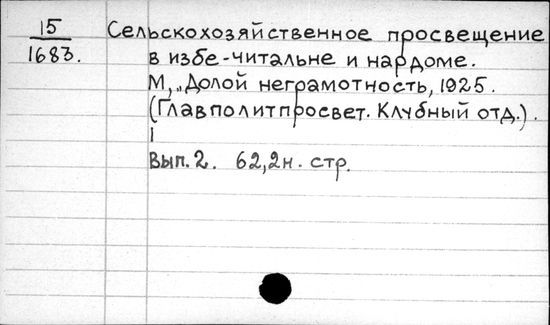 15
1683.
Сельскохозяйственное просвещение
в избе-читальне и нардоме.
М, „Долой неграмотность, 1925.
(Главполитпросвет. Клубный отд.).
I
Вып. 2. 62,2н. стр.